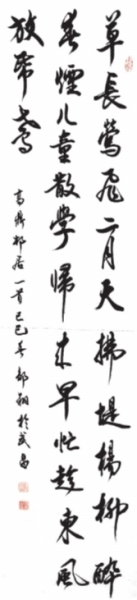 草長鶯飛二月天拂堤楊柳醉
春煙儿童散學歸來早忙趁東風
放紙鳶
高鼎邨居一首己巳春郜翔於武昌